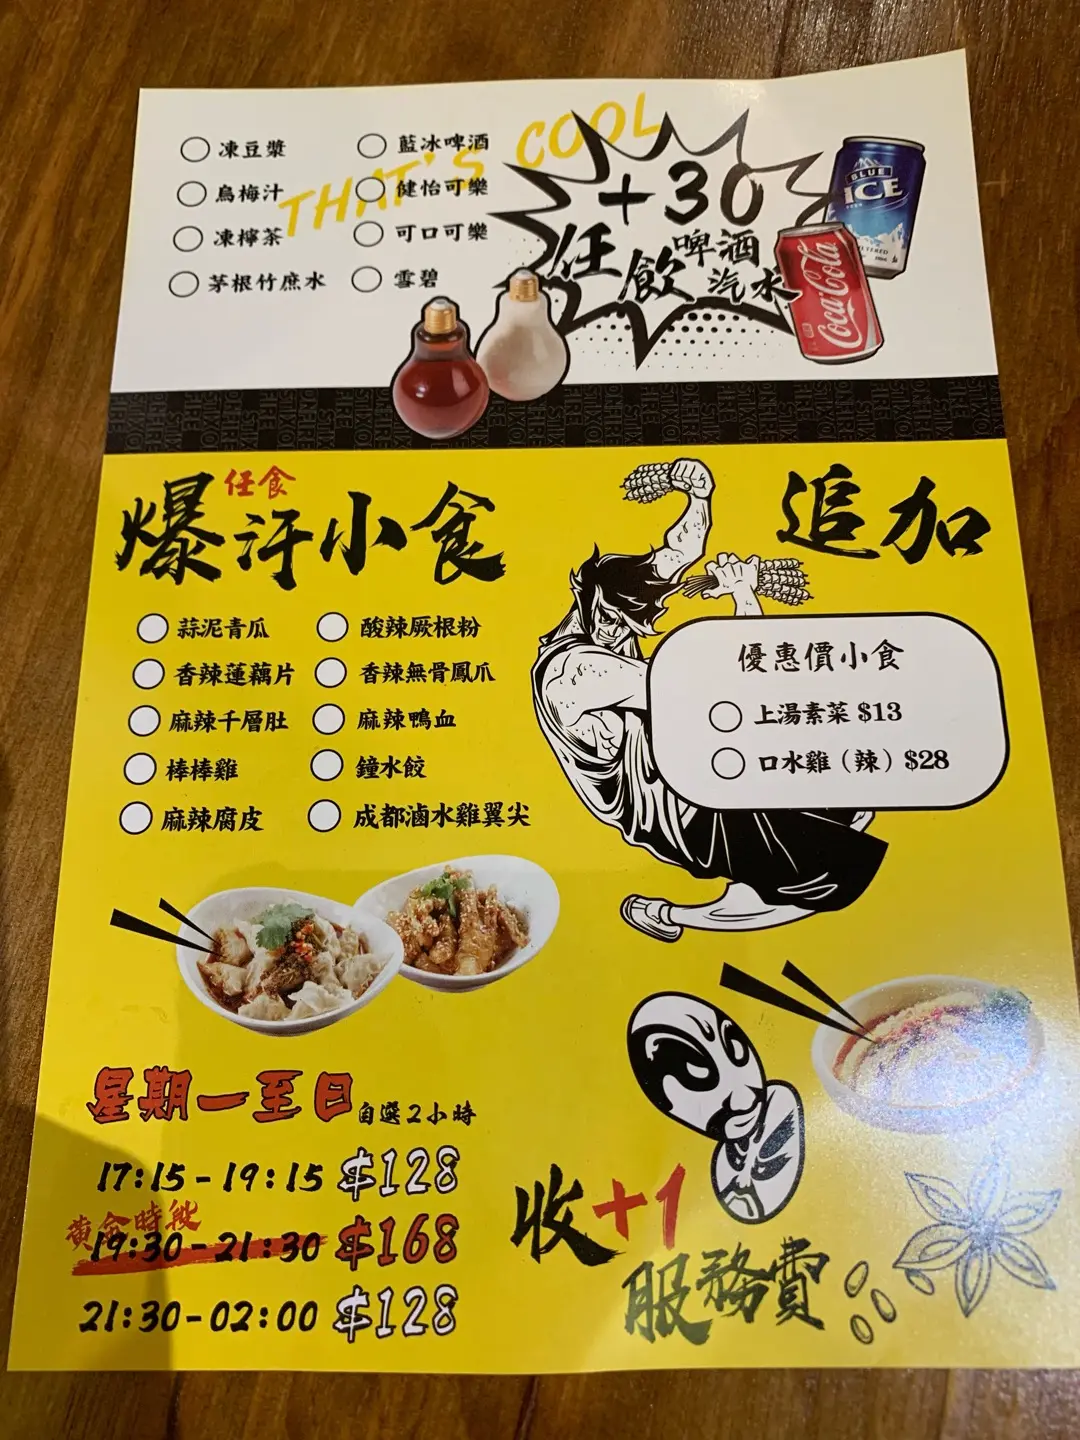 THAT'S COOL
凍豆漿
烏梅汁
凍檸茶
茅根竹庶水
藍冰啤酒
健怡可樂
可口可樂
雪碧
+30
任飲啤酒汽水
BLUE
ICE
Coca-Cola
任食
爆汗小食
蒜泥青瓜
香辣蓮藕片
麻辣千層肚
棒棒雞
麻辣腐皮
酸辣厥根粉
香辣無骨鳳爪
麻辣鴨血
鐘水餃
成都滷水雞翼尖
追加
優惠價小食
上湯素菜 $13
口水雞（辣）$28
星期一至日自選2小時
17:15-19:15 $128
黃金時段
19:30-21:30 $168
21:30-02:00 $128
收+1
服務費